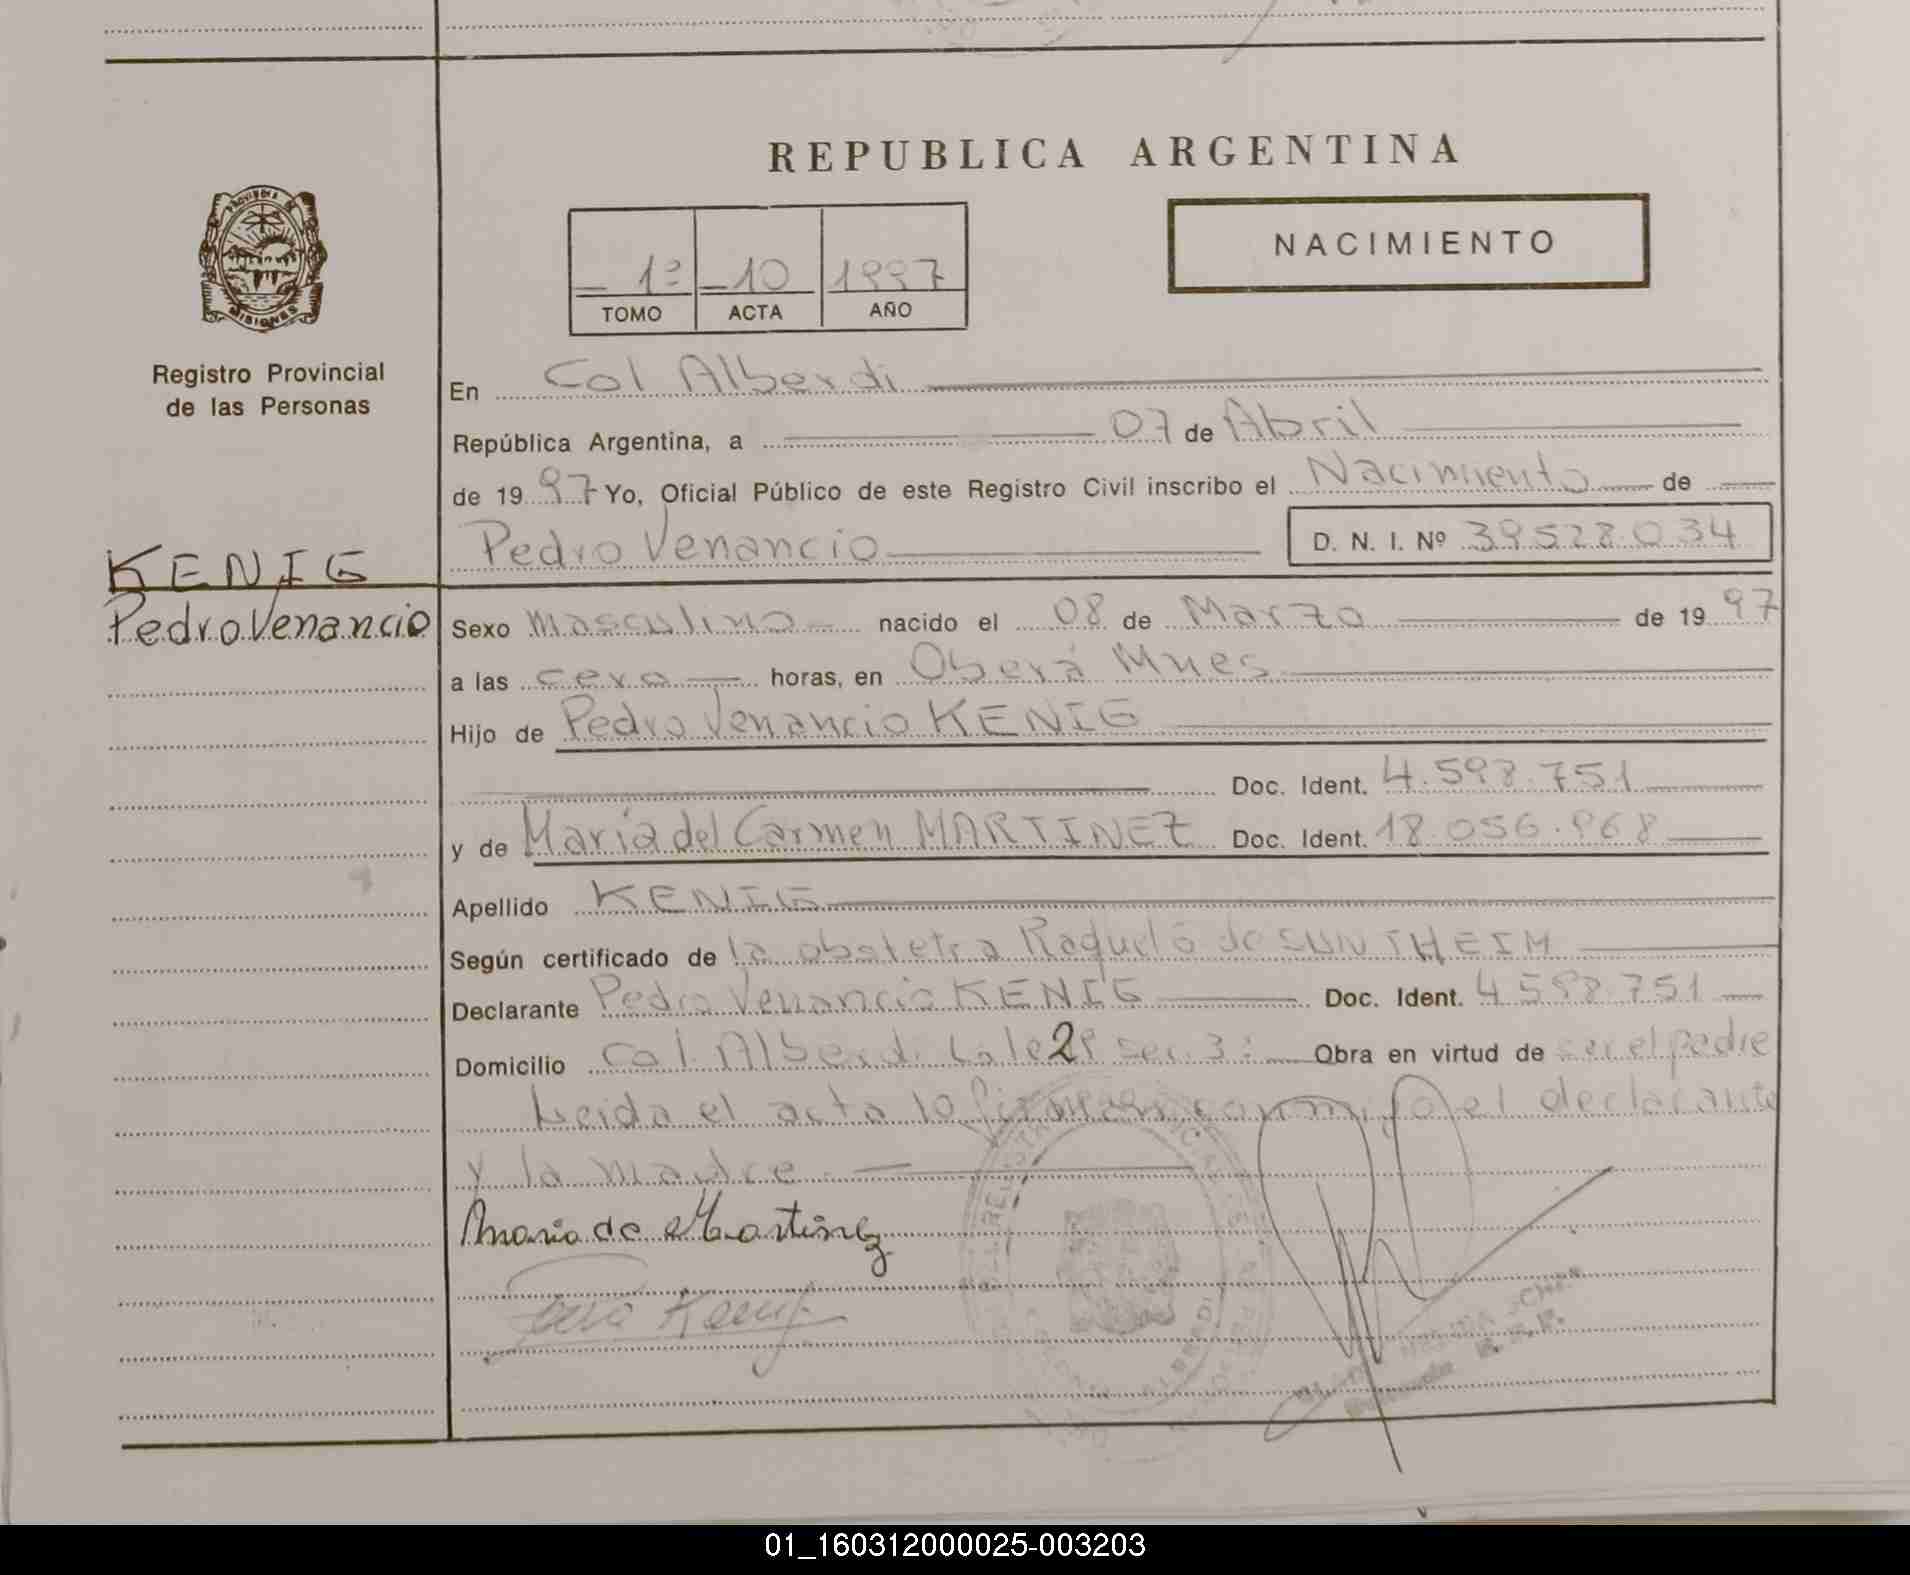 REPUBLICA ARGENTINA
PROVINCIA DE
MISIONES
1º 10 1997
TOMO ACTA AÑO
NACIMIENTO
Registro Provincial
de las Personas
En Col Alberdi
República Argentina, a 07 de Abril
de 1997 Yo, Oficial Público de este Registro Civil inscribo el Nacimiento de
Pedro Venancio D. N. I. Nº 39528.034
KENIG
Pedro Venancio
Sexo masculino nacido el 08 de Marzo de 1997
a las cero horas, en Oberá Mnes
Hijo de Pedro Venancio KENIG
Doc. Ident. 4.598.751
y de María del Carmen MARTINEZ Doc. Ident. 18.056.968
Apellido KENIG
Según certificado de la obstetra de SUNTHEIM
Declarante Pedro Venancio KENIG Doc. Ident. 4.598.751
Domicilio Col. Alberdi Lote 29 sec. 3º Obra en virtud de ser el padre
Leida el acta lo firman conmigo el declarante
y la madre
Maria de Martinez
01_160312000025-003203